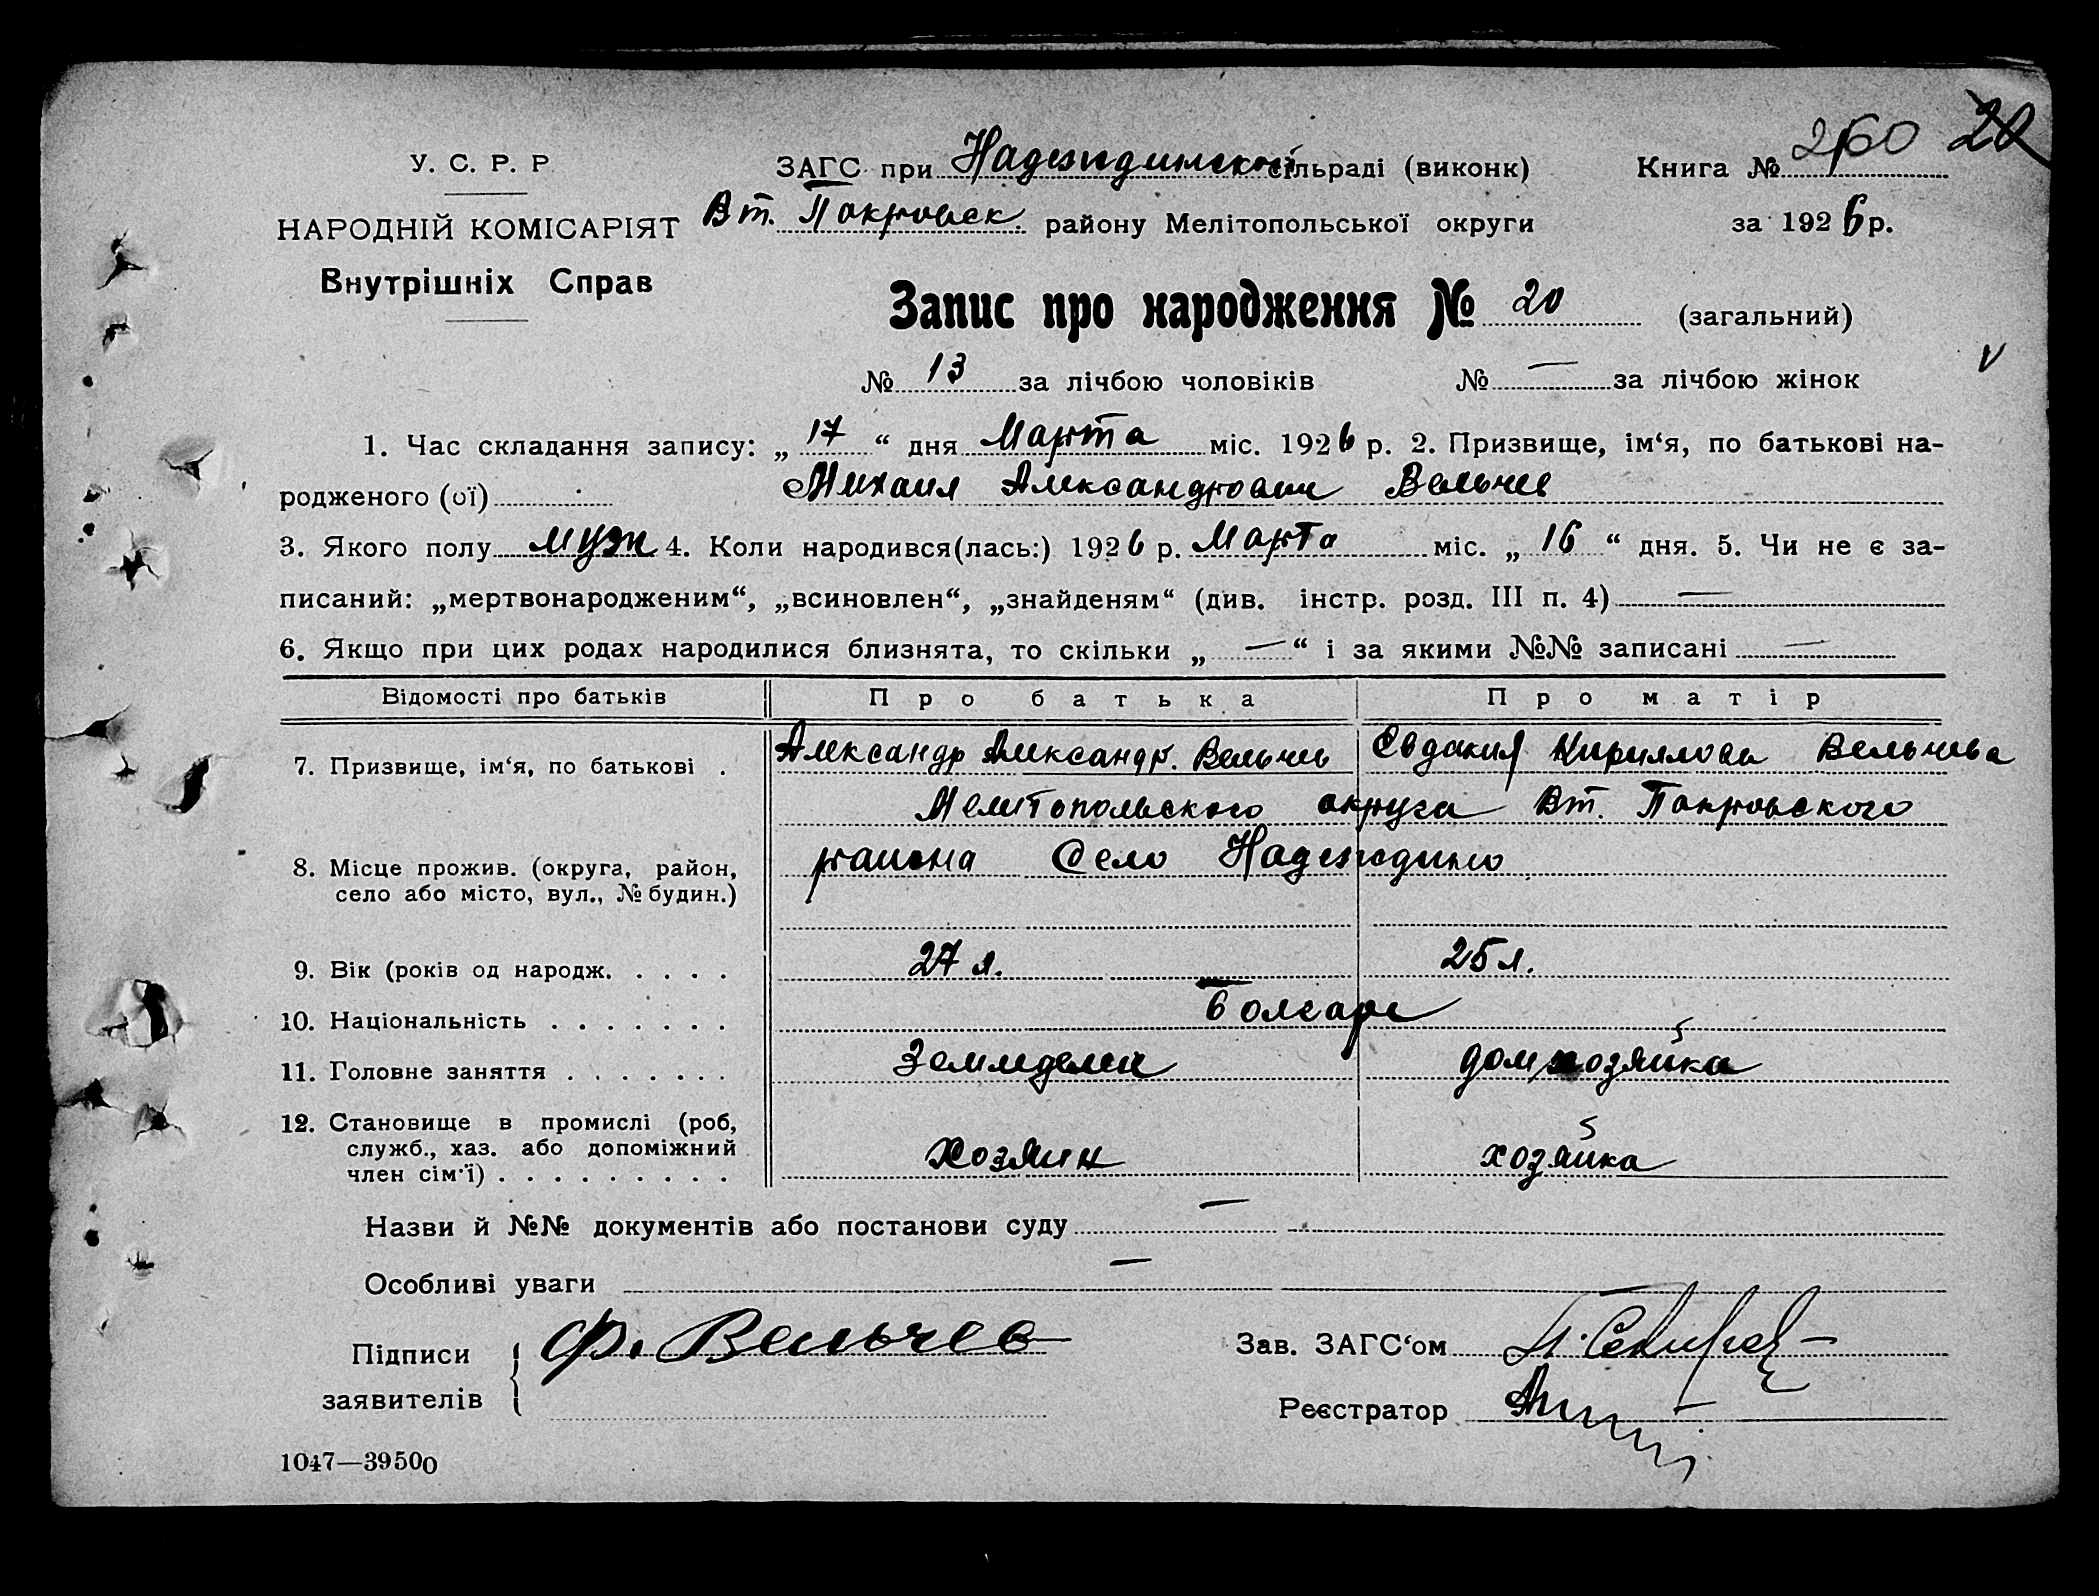 260 20
У. С. Р. Р
ЗАГС при Надеждинской сільраді (виконк)
Книга №
НАРОДНІЙ КОМІСАРІЯТ
Вт. Покровск. району Мелітопольської округи
за 1926 р.
Внутрішніх Справ
Запис про народження № 20 (загальний)
№ 13 за лічбою чоловіків № — за лічбою жінок
1. Час складання запису: „ 17 “ дня Марта міс. 1926 р. 2. Призвище, ім‘я, по батькові на-
родженого (ої) Михаил Александрович Вельчев
3. Якого полу муж 4. Коли народився(лась:) 1926 р. Марта міс. „ 16 “ дня. 5. Чи не є за-
писаний: „мертвонародженим“, „всиновлен“, „знайденям“ (див. інстр. розд. III п. 4) —
6. Якщо при цих родах народилися близнята, то скільки „ — “ і за якими №№ записані —
Відомості про батьків Про батька Про матір
7. Призвище, ім‘я, по батькові . Александр Александр. Вельчев Евдокия Кириллова Вельчева
Мелитопольского округа Вт. Покровского
8. Місце прожив. (округа, район, района Село Надеждино
село або місто, вул., № будин.)
9. Вік (років од народж. . . . . 27 л. 25 л.
10. Національність . . . . . . . Болгаре
11. Головне заняття . . . . . . . Земледелец домхозяйка
12. Становище в промислі (роб,
служб., хаз. або допоміжний Хозяин хозяйка
член сім‘ї) . . . . . . . . .
Назви й №№ документів або постанови суду —
Особливі уваги —
Підписи
заявителів
Ф. Вельчев
Зав. ЗАГС‘ом
Реєстратор
1047—39500